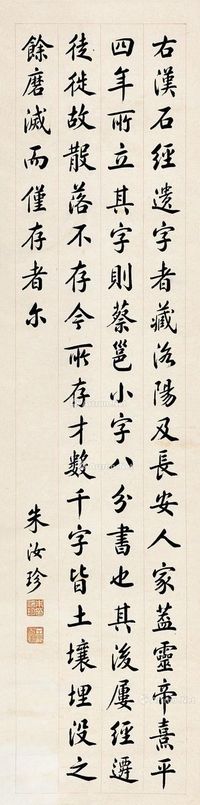 右漢石經遺字者藏洛陽及長安人家葢靈帝熹平
四年所立其字則蔡邕小字八分書也其後屢經遷
徒徙故散落不存今所存才數千字皆土壤埋没之
餘磨滅而僅存者尔
朱汝珍